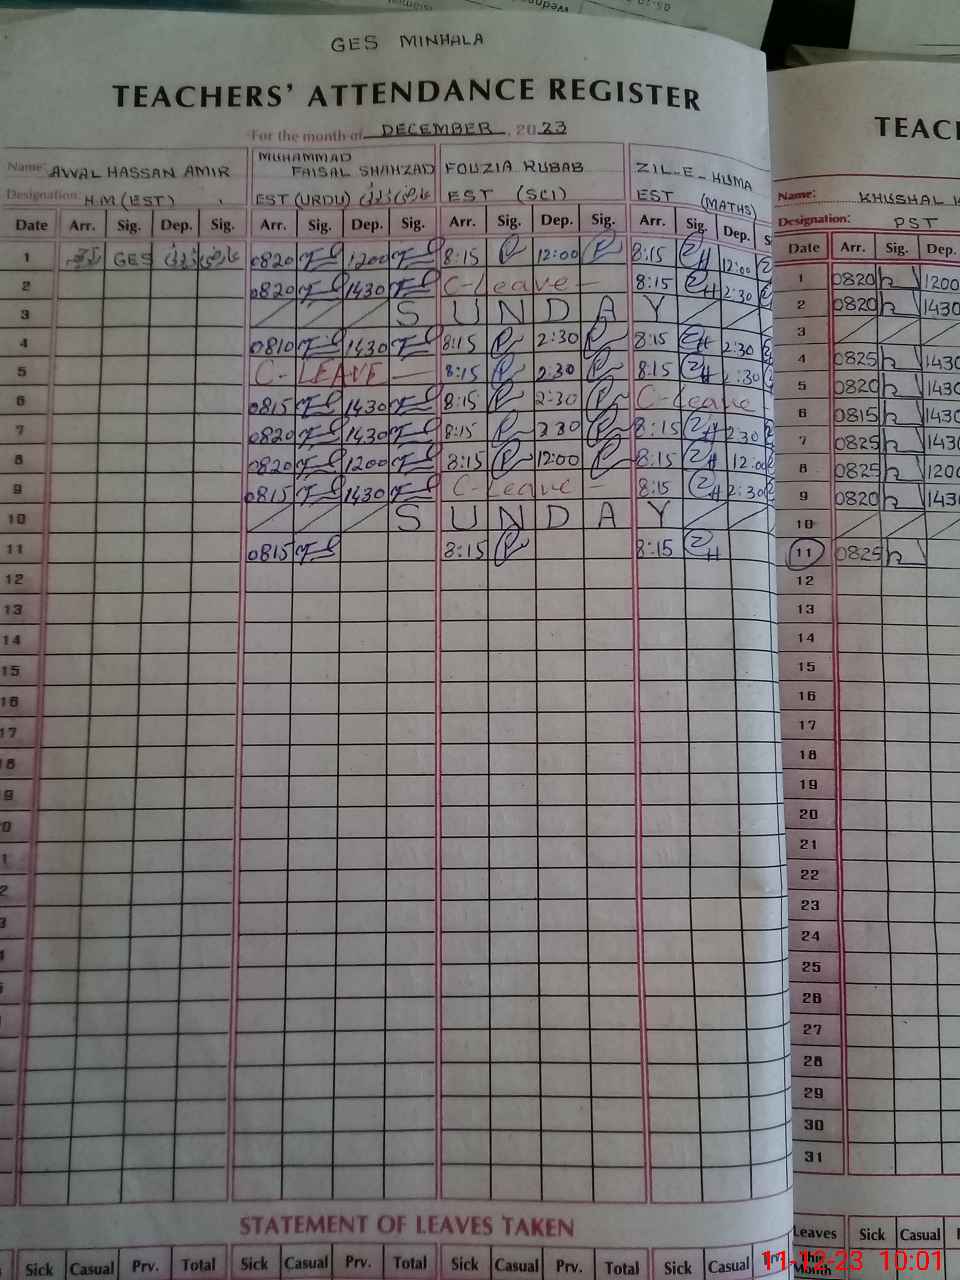 GES MINHALA
TEACHERS' ATTENDANCE REGISTER
For the month of DECEMBER, 2023
Name: AWAL HASSAN AMIR MUHAMMAD FAISAL SHAHZAD FOUZIA RUBAB ZIL-E-HUMA
Designation: H.M (EST) EST (URDU) EST (SCI) EST (MATHS)
Date Arr. Sig. Dep. Sig. Arr. Sig. Dep. Sig. Arr. Sig. Dep. Sig. Arr. Sig. Dep. S
1 GES 0820 1200 8:15 12:00 8:15 12:00
2 0820 1430 C-Leave - 8:15 2:30
3 S U N D A Y
4 0810 1430 8:15 2:30 8:15 2:30
5 C-LEAVE - 8:15 2:30 8:15 2:30
6 0815 1430 8:15 2:30 C-Leave -
7 0820 1430 8:15 2:30 8:15 2:30
8 0820 1200 8:15 12:00 8:15 12:00
9 0815 1430 C-Leave - 8:15 2:30
10 S U N D A Y
11 0815 8:15 8:15
12
13
14
15
16
17
18
9
0
1
2
3
4
STATEMENT OF LEAVES TAKEN
Sick Casual Prv. Total Sick Casual Prv. Total Sick Casual Prv. Total Sick Casual
TEAC
Name: KHUSHAL
Designation: PST
Date Arr. Sig. Dep.
1 0820 1200
2 0820 1430
3
4 0825 1430
5 0820 1430
6 0815 1430
7 0825 1430
8 0825 1200
9 0820 1430
10
11 0825
12
13
14
15
16
17
18
19
20
21
22
23
24
25
26
27
28
29
30
31
Leaves Sick Casual
This Month
11-12-23 10:01